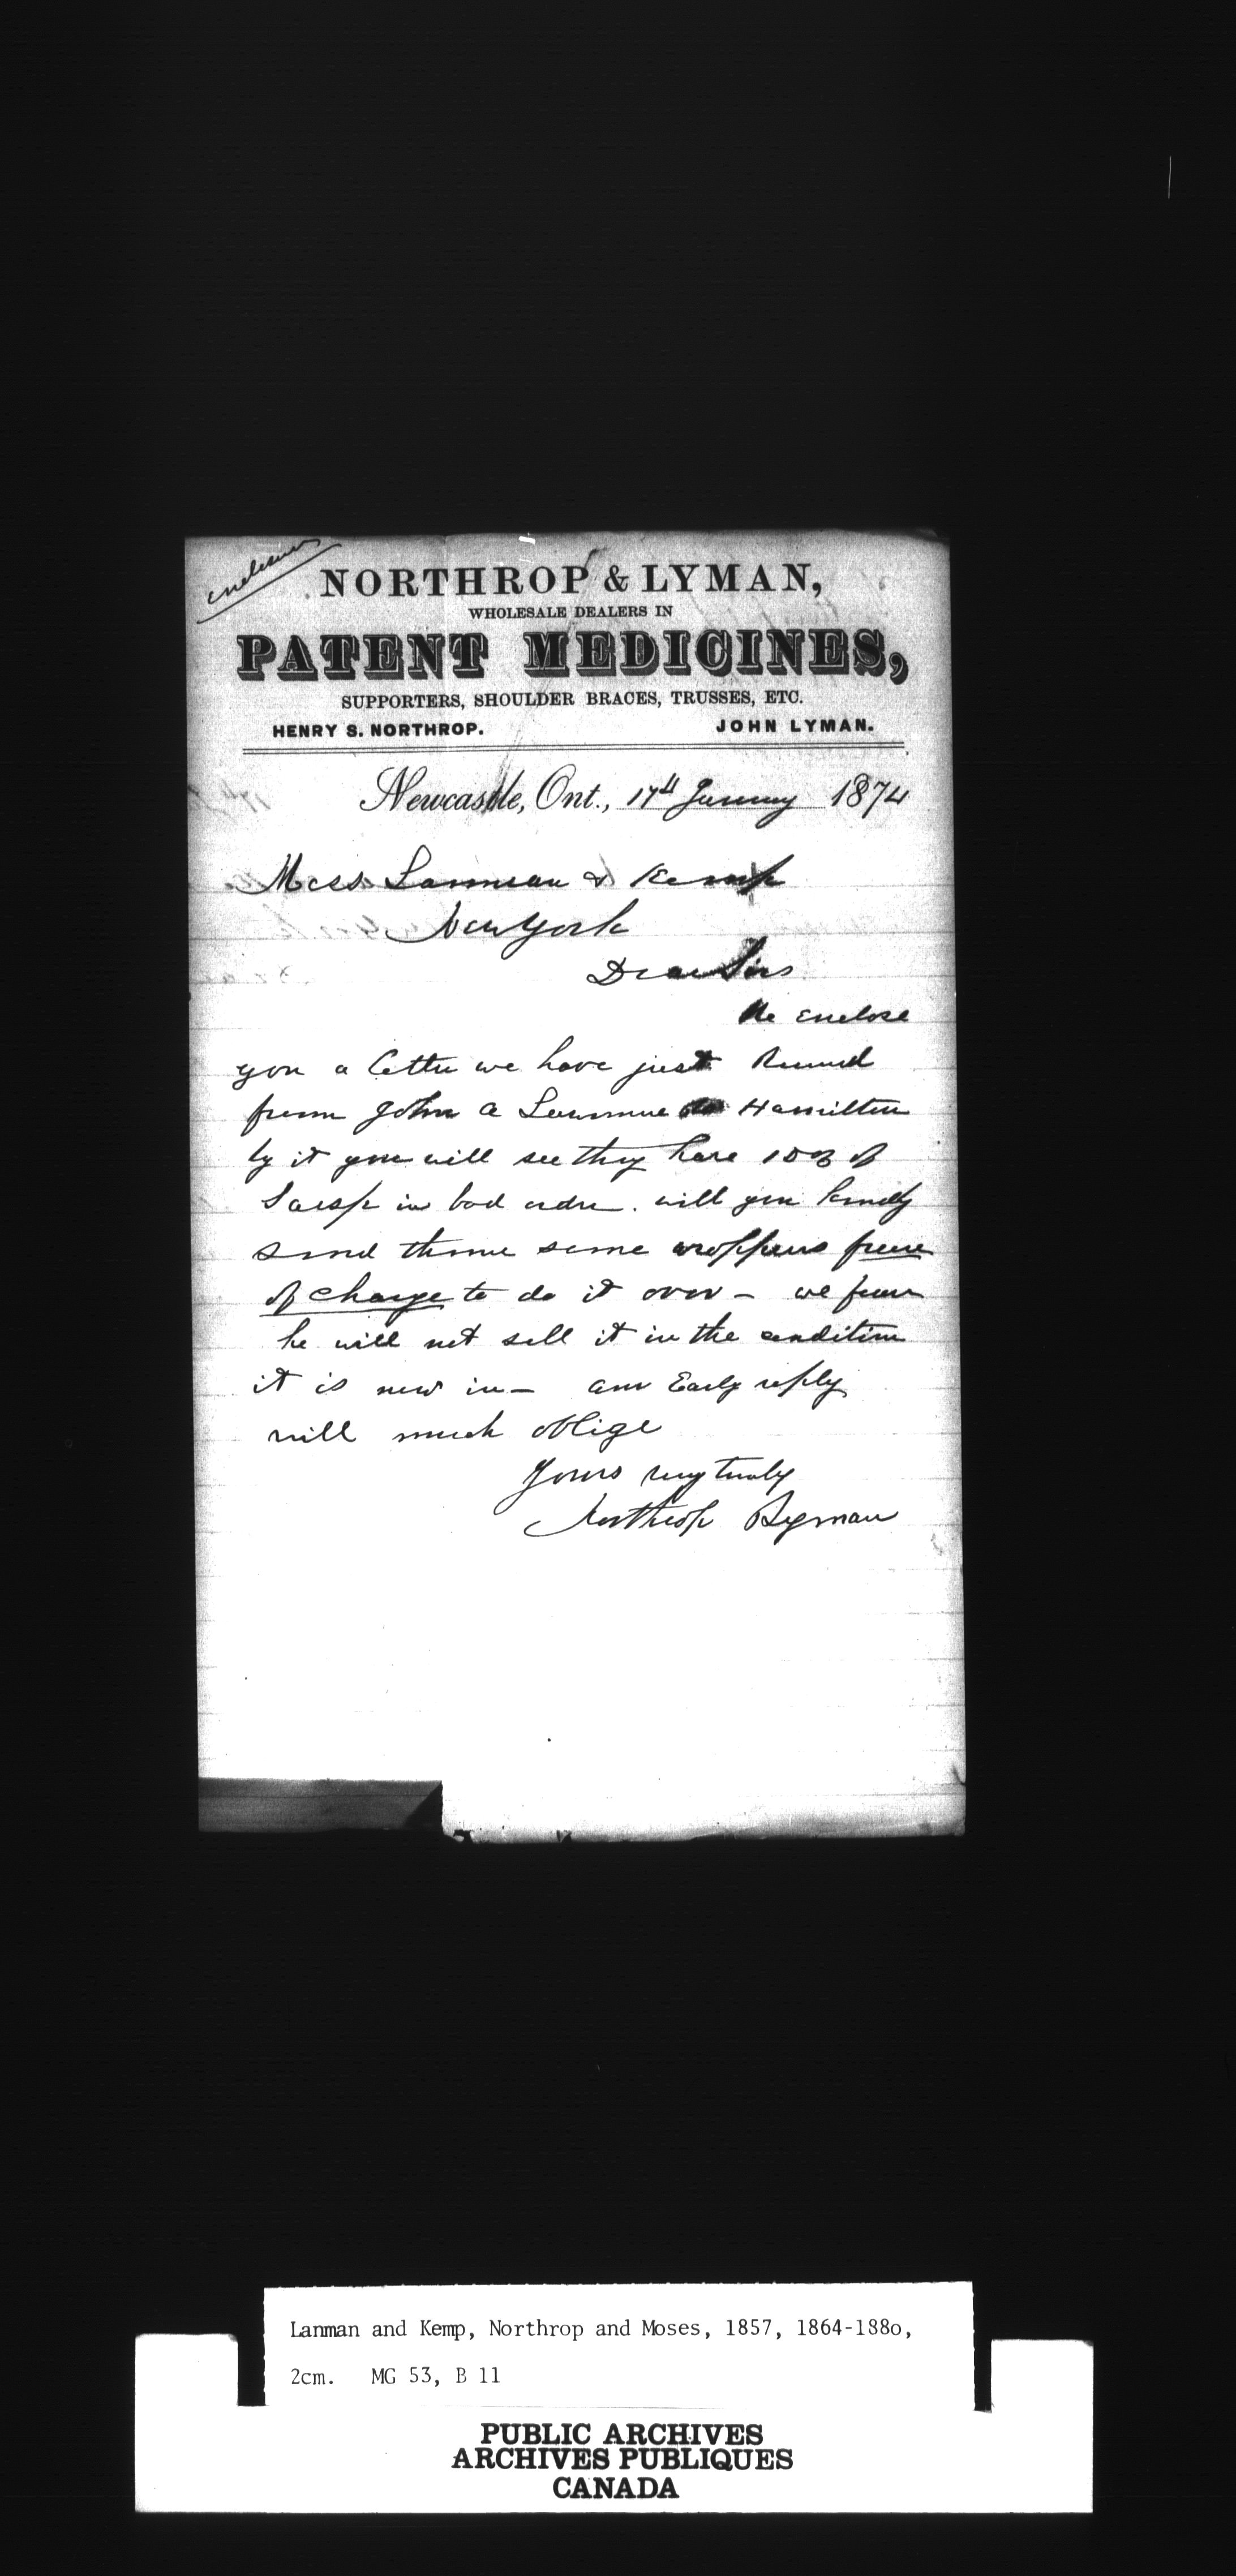 enclosure
NORTHROP & LYMAN,
WHOLESALE DEALERS IN
PATENT MEDICINES,
SUPPORTERS, SHOULDER BRACES, TRUSSES, ETC.
HENRY S. NORTHROP. JOHN LYMAN.
Newcastle, Ont., 17th January 1874
Mess Lanman & Kemp
New York
Dear Sirs
We enclose
you a letter we have just Received
from John A Hamilton
by it you will see they have of
Sarsp in bad order. will you kindly
send them some wrappers free
of charge to do it over - we fear
he will not sell it in the condition
it is now in - an Early reply
will much oblige
Yours very truly
Northrop Lyman
Lanman and Kemp, Northrop and Moses, 1857, 1864-188o,
2cm. MG 53, B 11
PUBLIC ARCHIVES
ARCHIVES PUBLIQUES
CANADA